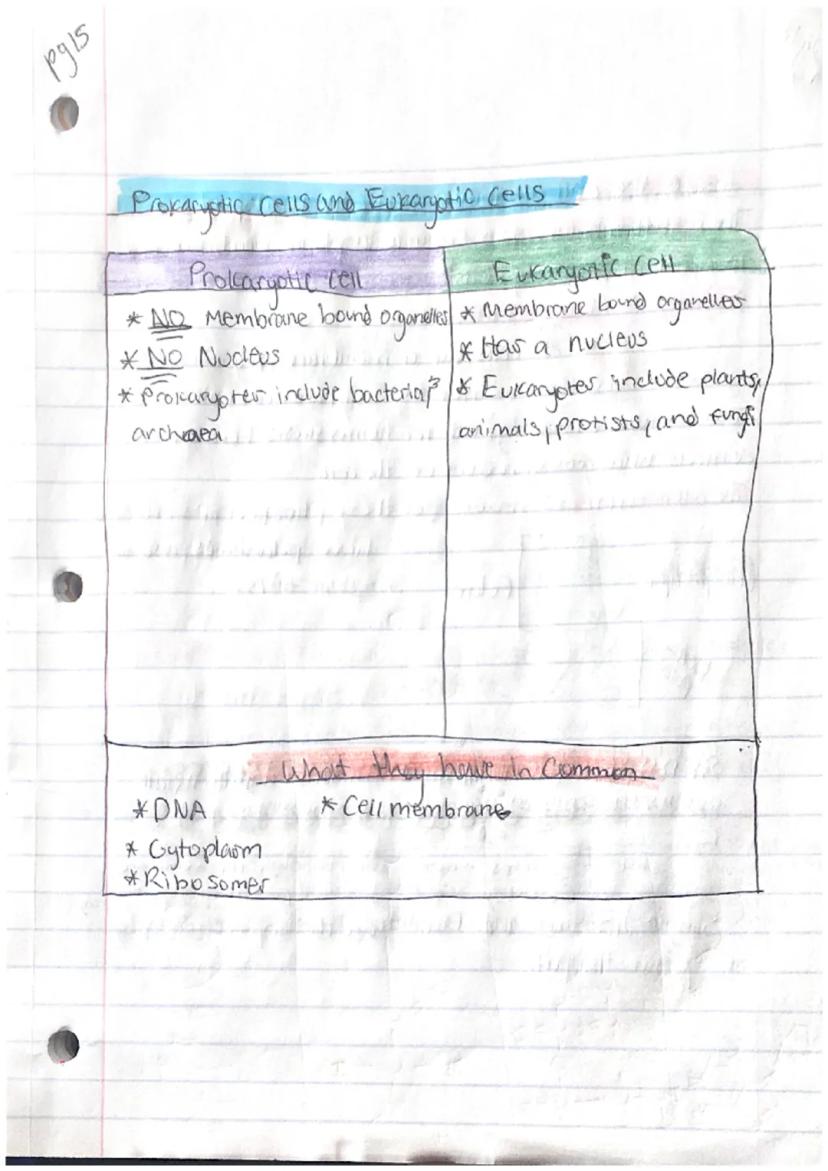 pg15
Prokaryotic cells and Eukaryotic cells
Prokaryotic cell
* NO Membrane bound organelles
* NO Nucleus
* Prokaryotes include bacteria &
archaea
Eukaryotic cell
* Membrane bound organelles
* Has a nucleus
* Eukaryotes include plants,
animals, protists, and fungi
What they have In Common
* DNA
* Cell membrane
* Cytoplasm
* Ribosomes